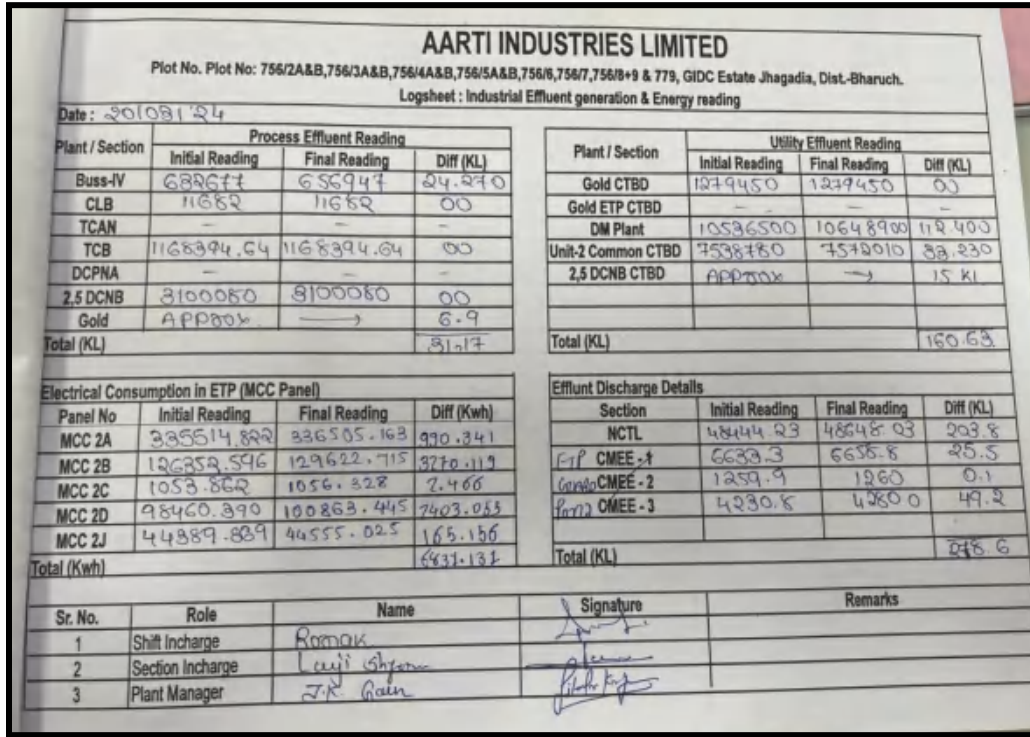 AARTI INDUSTRIES LIMITED
Plot No. Plot No: 756/2A&B,756/3A&B,756/4A&B,756/5A&B,756/6,756/7,756/8+9 & 779, GIDC Estate Jhagadia, Dist.-Bharuch.
Logsheet : Industrial Effluent generation & Energy reading
Date : 20/08/24
Plant / Section Process Effluent Reading
Initial Reading Final Reading Diff (KL)
Buss-IV 632677 656947 24.270
CLB 11682 11682 00
TCAN — — —
TCB 1168394.64 1168394.64 00
DCPNA — — —
2,5 DCNB 3100080 3100080 00
Gold Approx → 6.9
Total (KL) 31.17
Plant / Section Utility Effluent Reading
Initial Reading Final Reading Diff (KL)
Gold CTBD 1279450 1279450 00
Gold ETP CTBD — — —
DM Plant 10536500 10648900 112.400
Unit-2 Common CTBD 7538780 7572010 33.230
2,5 DCNB CTBD APPROX → 15 KL
Total (KL) 160.63
Electrical Consumption in ETP (MCC Panel)
Panel No Initial Reading Final Reading Diff (Kwh)
MCC 2A 335514.822 336505.163 990.341
MCC 2B 126352.596 129622.715 3270.119
MCC 2C 1053.862 1056.328 2.466
MCC 2D 98460.390 100863.445 2403.055
MCC 2J 44389.869 44555.025 165.156
Total (Kwh) 6831.131
Efflunt Discharge Details
Section Initial Reading Final Reading Diff (KL)
NCTL 48444.23 48648.03 203.8
ETP CMEE -1 6633.3 6658.8 25.5
CMEE - 2 1259.9 1260 0.1
CMEE - 3 4230.8 4280 0 49.2
Total (KL) 278.6
Sr. No. Role Name Signature Remarks
1 Shift Incharge Romak
2 Section Incharge
3 Plant Manager J.K. Gain